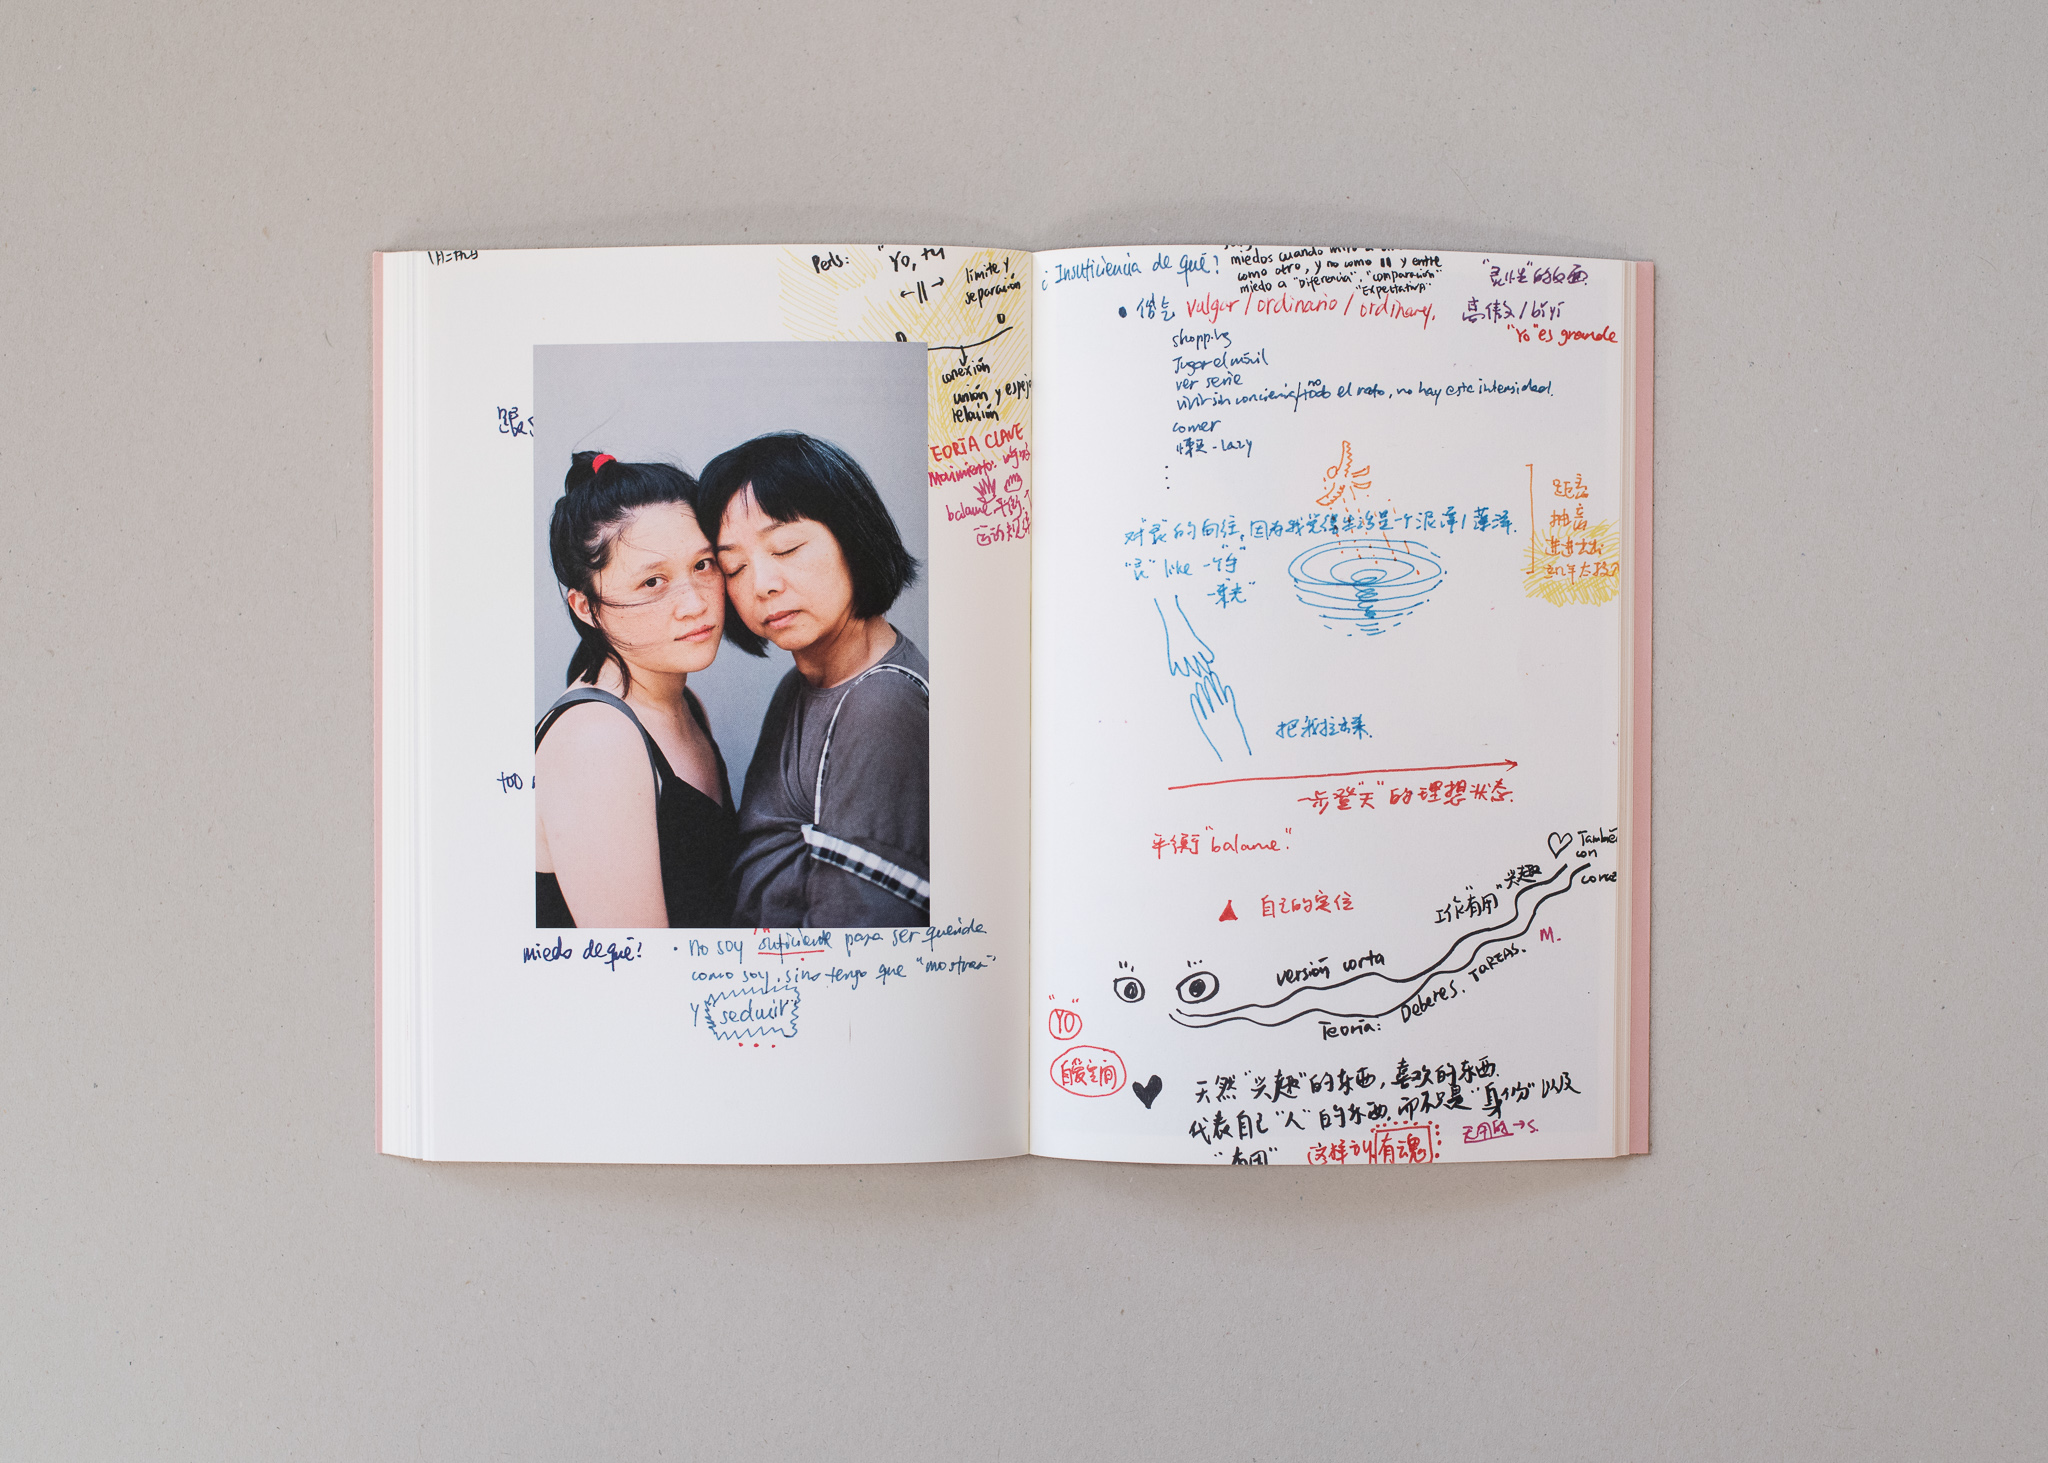 Perls: "Yo, tú
←||→
límite y
separación
conexión
unión y espejo
relación
TEORÍA CLAVE
Movimiento.
balance 平衡.
跟
Yoo
miedo de qué?
· No soy suficiente para ser querida
como soy, sino tengo que "mostrar"
y seducir
...
¿Insuficiencia de qué?
miedos cuando miro a
como otro, y no como || y entre
miedo a "Diferencia", "comparación"
"Expectativa"
"灵性"的反面.
• 俗气 vulgar / ordinario / ordinary.
高傲 / biyi
"Yo" es grande
shopping
Jugar el móvil
ver serie
vivir sin conciencia/no todo el rato, no hay esta intensidad.
comer
懒 - lazy
距离
抽离
对"灵"的向往, 因为我觉得生活是一个泥潭 / 薄泽.
"灵" like 一个"
一束光"
把我拉出来.
一步登"天"的理想状态.
平衡 "balance".
▲ 自己的定位
También
con
工作"有用" 兴趣
versión corta
Teoría:
Deberes. TAREAS.
M.
"YO"
自爱空间
天然"兴趣"的东西, 喜欢的东西.
代表自己"人"的东西. 而不是"身份"以及
"有用"
这样才有魂
无用的 → s.